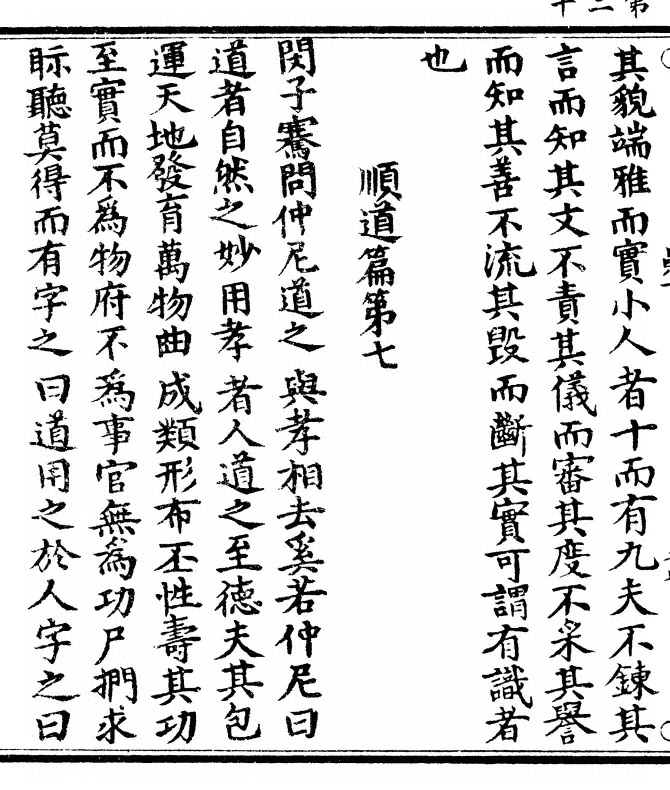 其貌端雅而實小人者十而有九夫不鍊其
言而知其文不責其儀而審其度不采其譽
而知其善不流其毀而斷其實可謂有識者
也
順道篇第七
閔子騫問仲尼道之與孝相去奚若仲尼曰
道者自然之妙用孝者人道之至德夫其包
運天地發育萬物曲成類形布丕性壽其功
至實而不為物府不為事官無為功尸捫求
眎聽莫得而有字之曰道用之於人字之曰